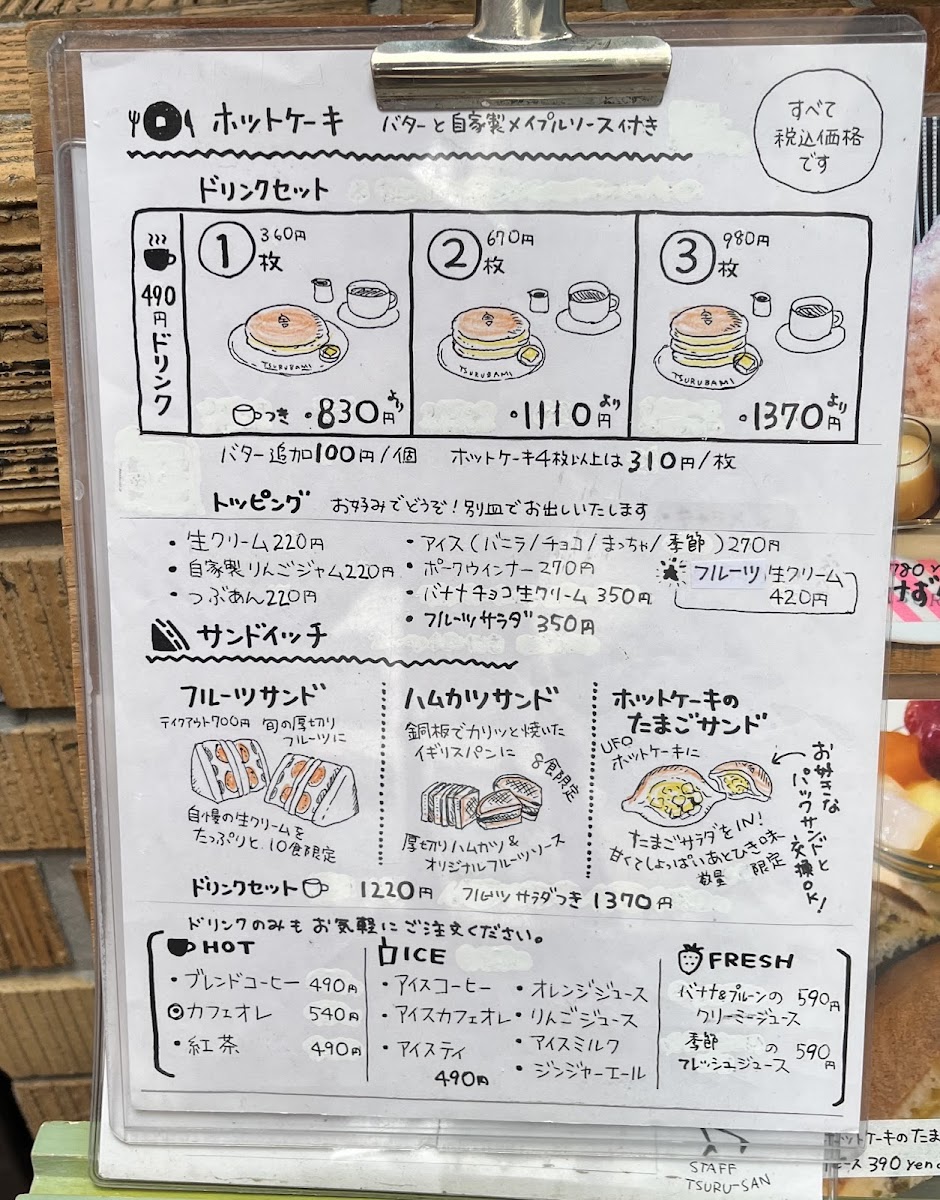 ホットケーキ バターと自家製メイプルソース付き
すべて
税込価格
です
ドリンクセット
490円ドリンク
1枚 360円
TSURUBAMI
つき 830円より
2枚 670円
TSURUBAMI
1110円より
3枚 980円
TSURUBAMI
1370円より
バター追加100円/個 ホットケーキ4枚以上は310円/枚
トッピング お好みでどうぞ!別皿でお出しいたします
・生クリーム220円
・自家製りんごジャム220円
・つぶあん220円
・アイス(バニラ/チョコ/まっちゃ/季節)270円
・ポークウインナー270円
・バナナチョコ生クリーム350円
・フルーツサラダ350円
フルーツ生クリーム
420円
サンドイッチ
フルーツサンド
テイクアウト700円 旬の厚切り
フルーツに
自慢の生クリームを
たっぷりと、10食限定
ハムカツサンド
銅板でカリッと焼いた
イギリスパンに
8食限定
厚切りハムカツ&
オリジナルフルーツソース
ホットケーキの
たまごサンド
UFO
ホットケーキに
たまごサラダをIN!
甘くてしょっぱいあとひき味
数量限定
お好きな
パックサンドと
交換OK!
ドリンクセット 1220円 フルーツサラダつき 1370円
ドリンクのみもお気軽にご注文ください。
HOT
・ブレンドコーヒー 490円
カフェオレ 540円
・紅茶 490円
ICE
・アイスコーヒー
・アイスカフェオレ
・アイスティ
・オレンジジュース
・りんごジュース
・アイスミルク
・ジンジャーエール
490円
FRESH
バナナ&プルーンの
クリーミージュース
590円
季節の
フレッシュジュース
590円
STAFF
TSURU-SAN
ホットケーキのたま
390yen